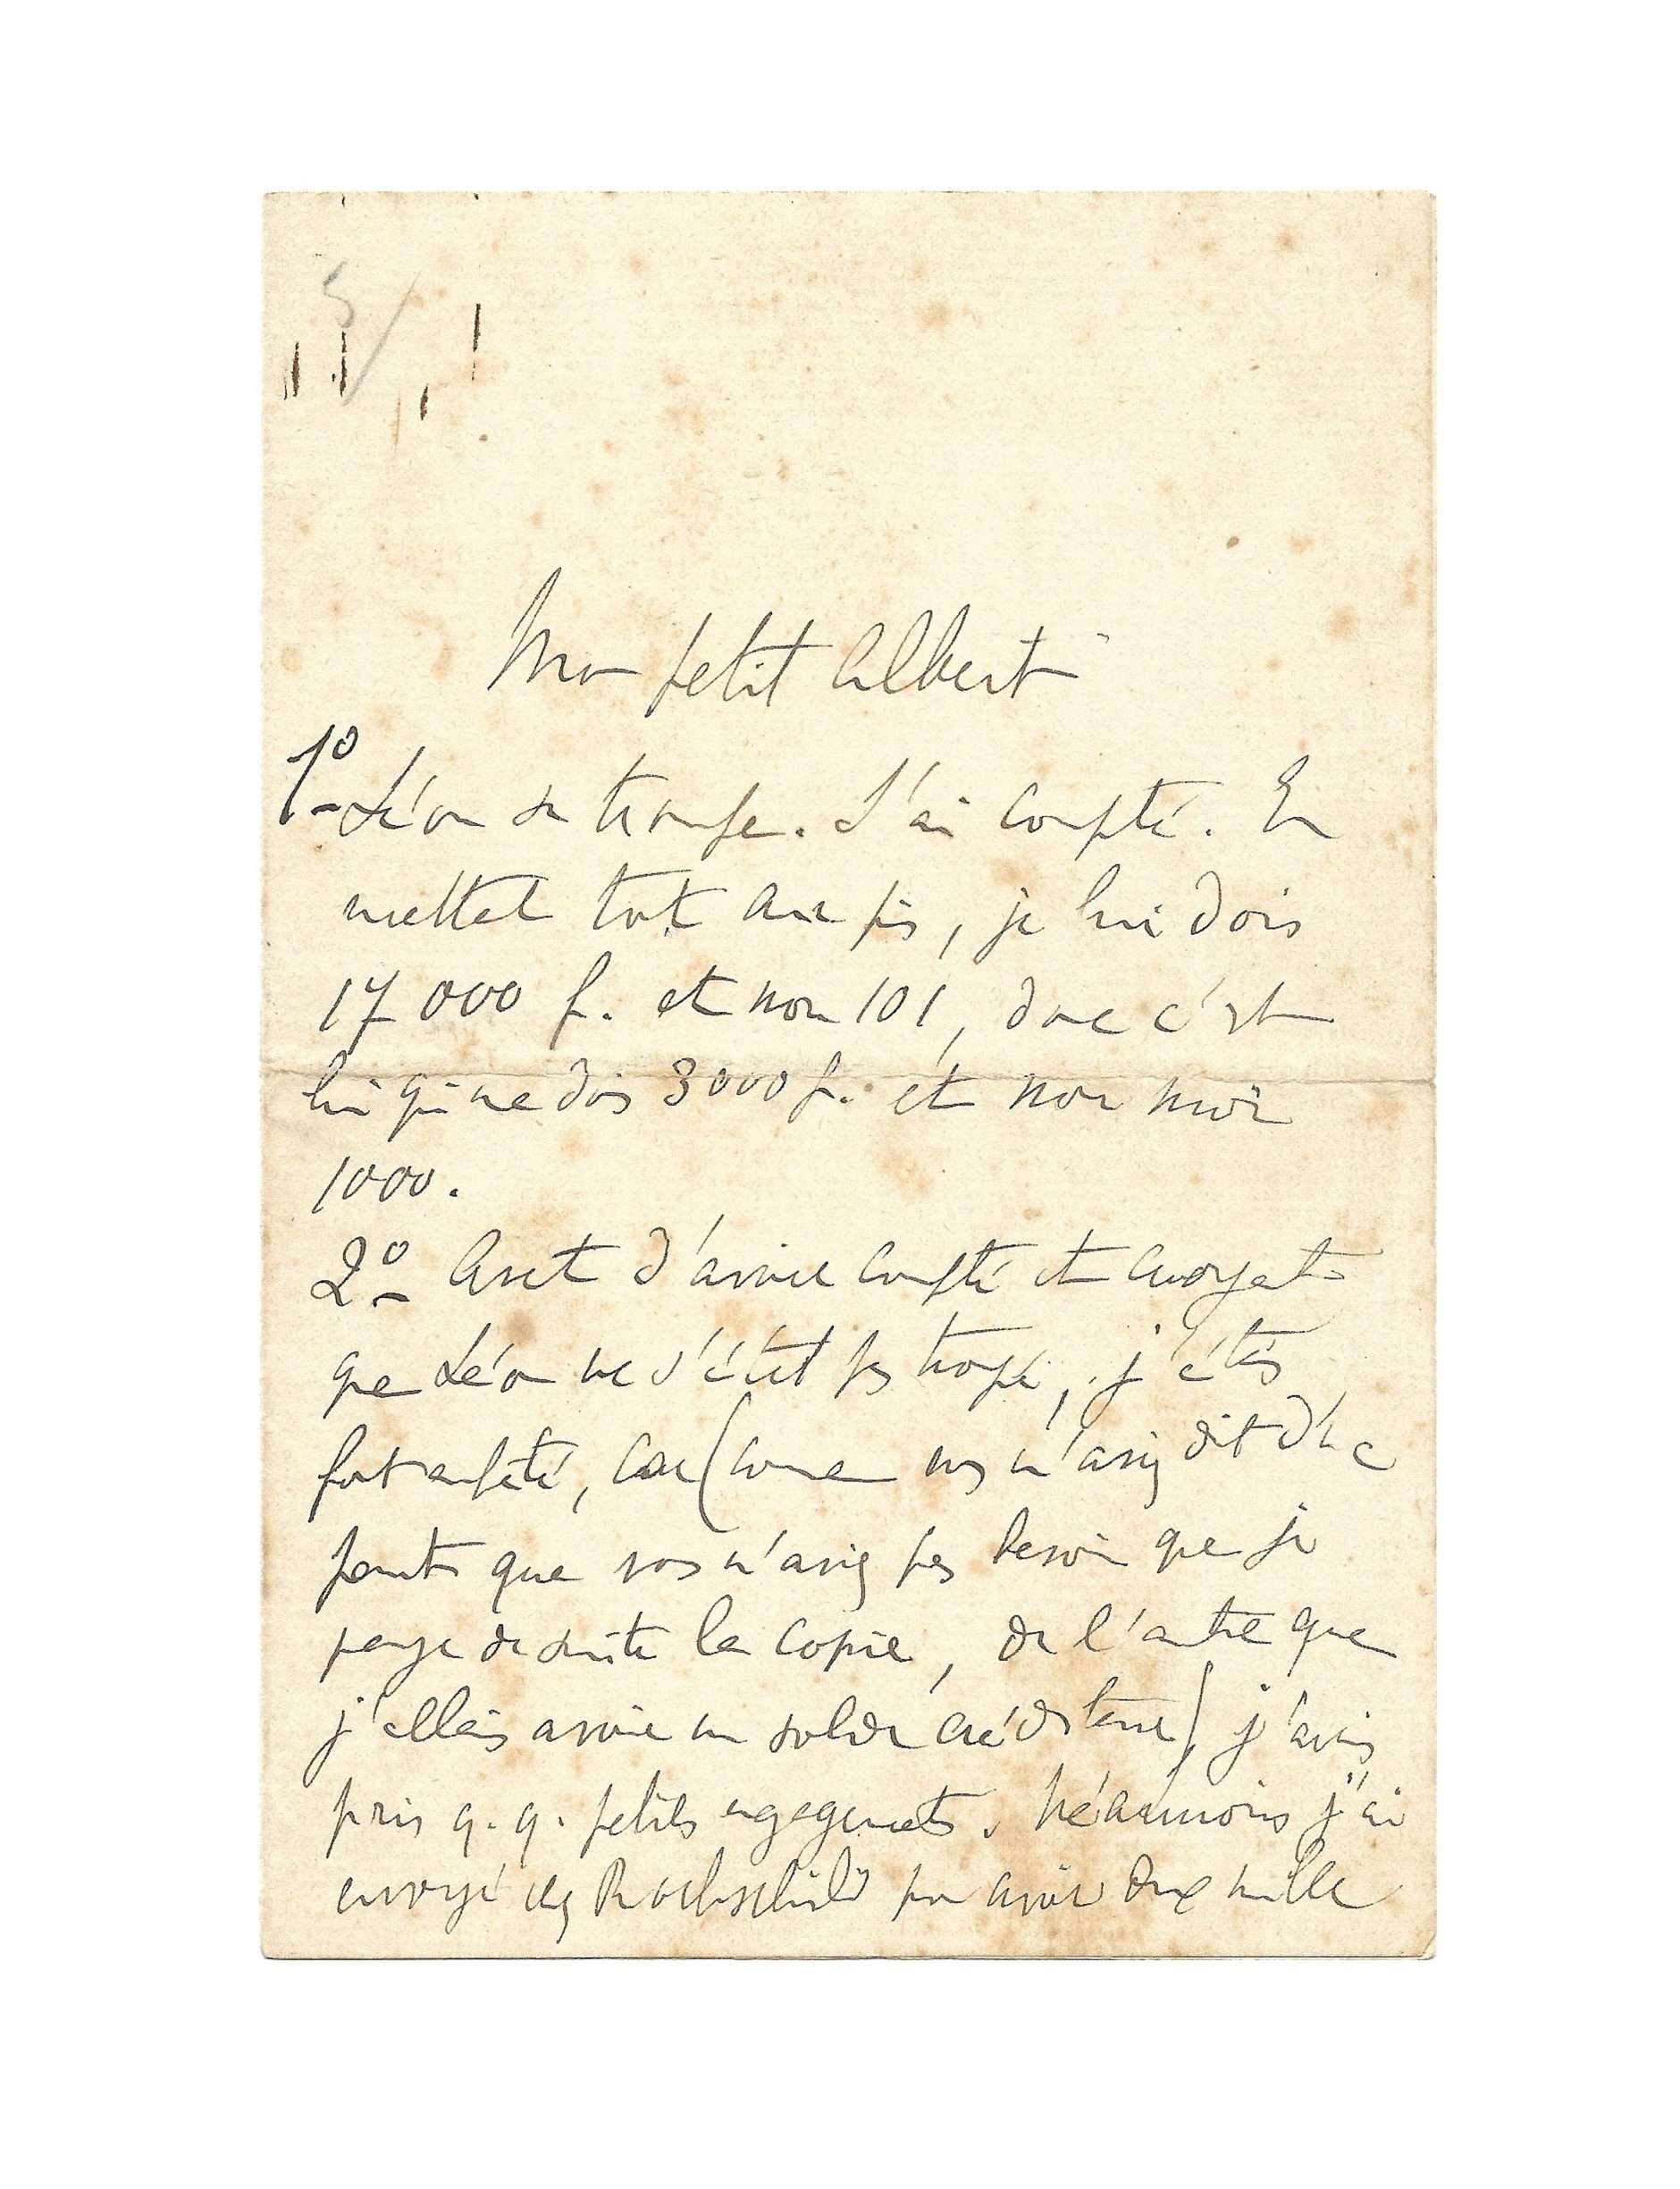 Mon petit Albert
1º Léon se trompe. J'ai compté. En
mettant tout au pis, je lui dois
17 000 f. et non 101, donc c'est
lui qui me dois 3000 f. et non moi
1000.
2º Avant d'avoir compté et croyant
que Léon ne s'était pas trompé, j'étais
fort embêté, car (comme vous m'aviez dit d'une
part que vous n'aviez pas besoin que je
paye de suite la copie, de l'autre que
j'allais avoir un solde créditeur) j'avais
pris q.q. petits engagements. Néanmoins j'ai
envoyé chez Rothschild pour avoir deux mille